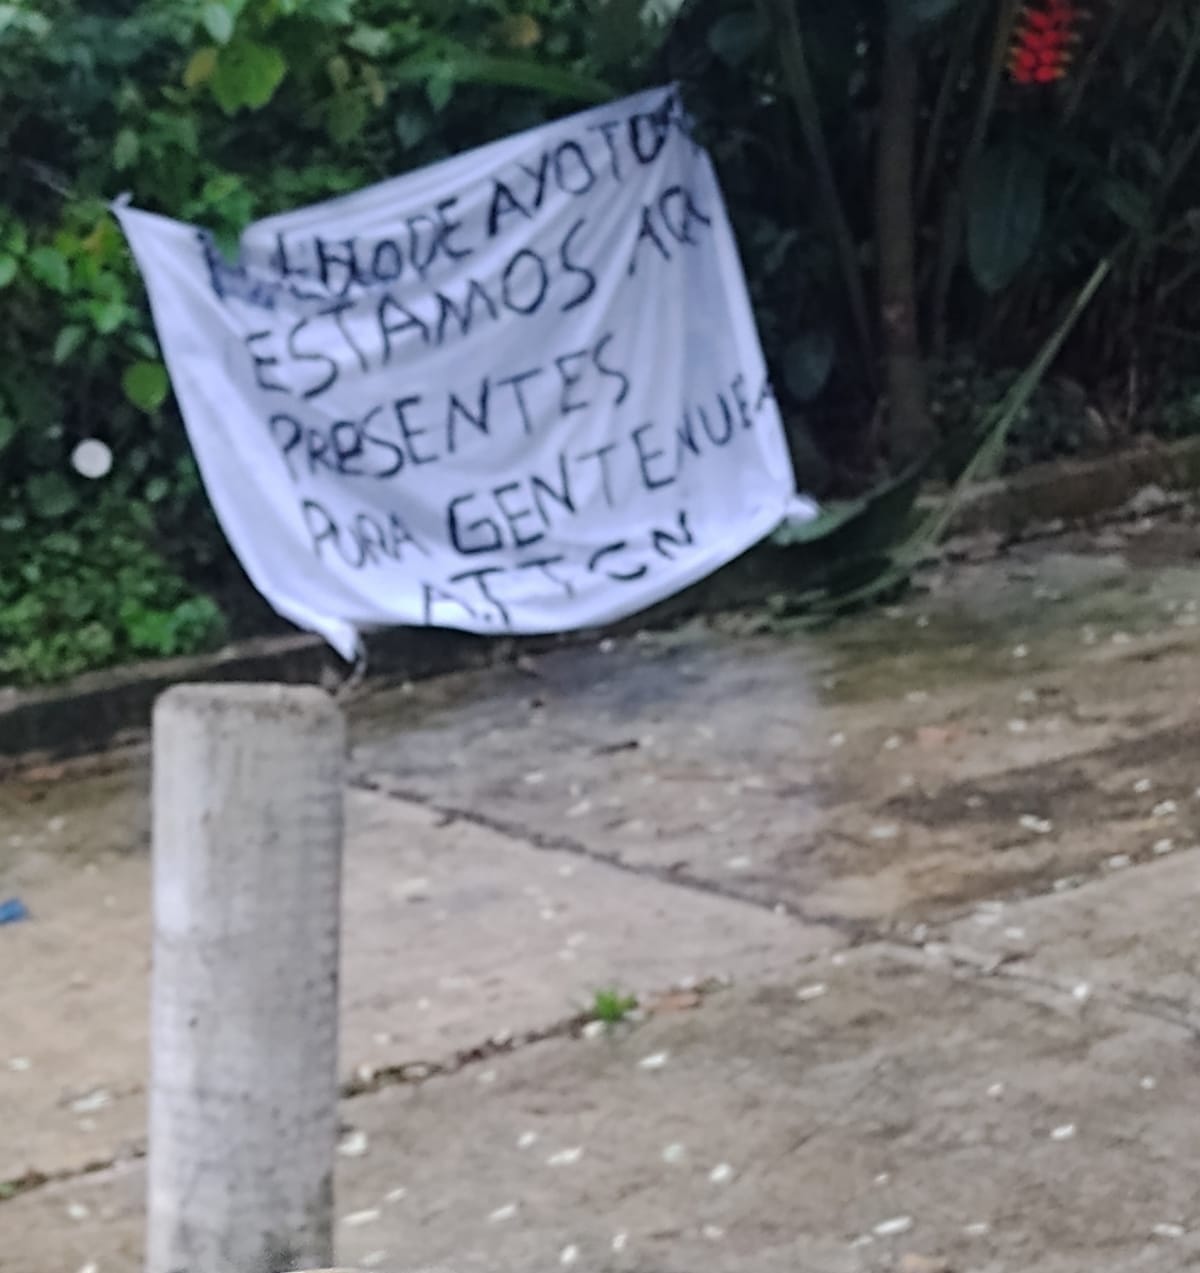 DE AYOTOX
ESTAMOS AQ
PRESENTES
PURA GENTE NUEA
ATT CN